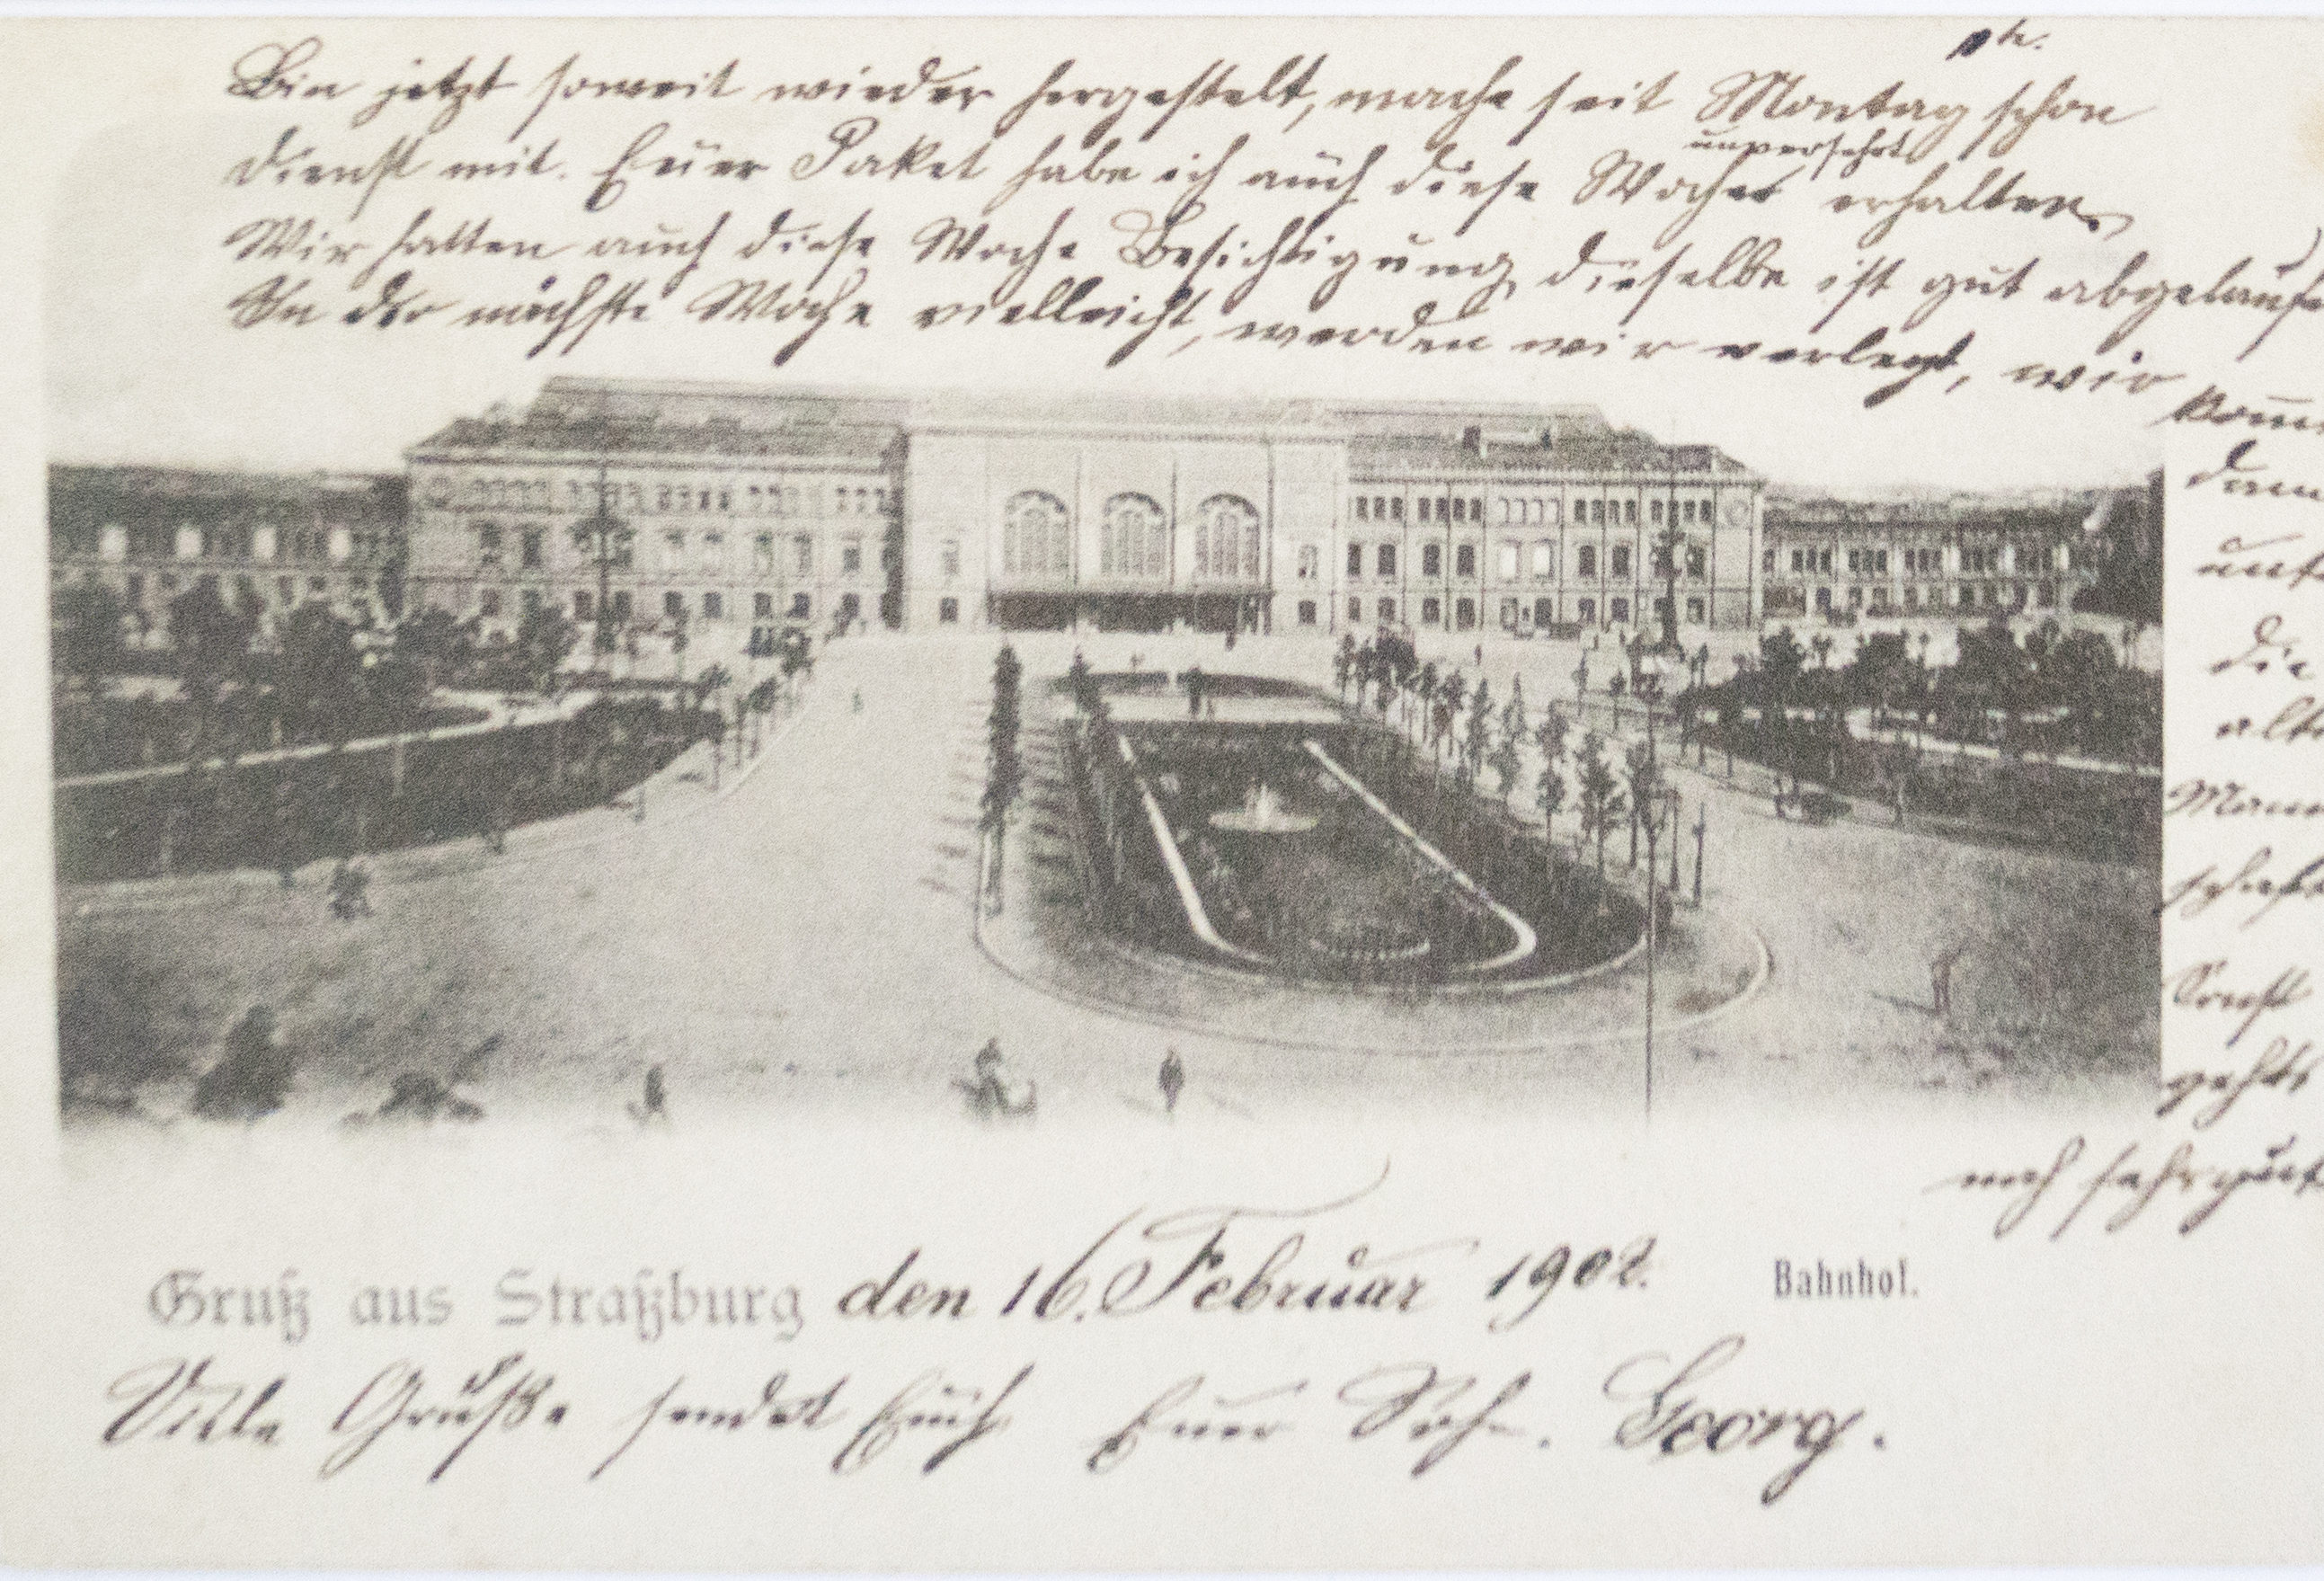 Bin jetzt soweit wieder hergestelt, mache seit Montag schon
dienst mit. Euer Paket habe ich auch diese Woche unversehrt erhalten,
Wir hatten auch diese Woche Besichtigung, dieselbe ist gut abgelaufe
In der nächste Woche vielleicht, werden wir verlegt, wir
komm
dann
unt
die
alte
Mann
schaft
Sonst
gehts
noch sehr gut
Gruß aus Straßburg den 16. Februar 1902. Bahnhof.
Viele Grüße sendet Euch Euer Sohn. Georg.